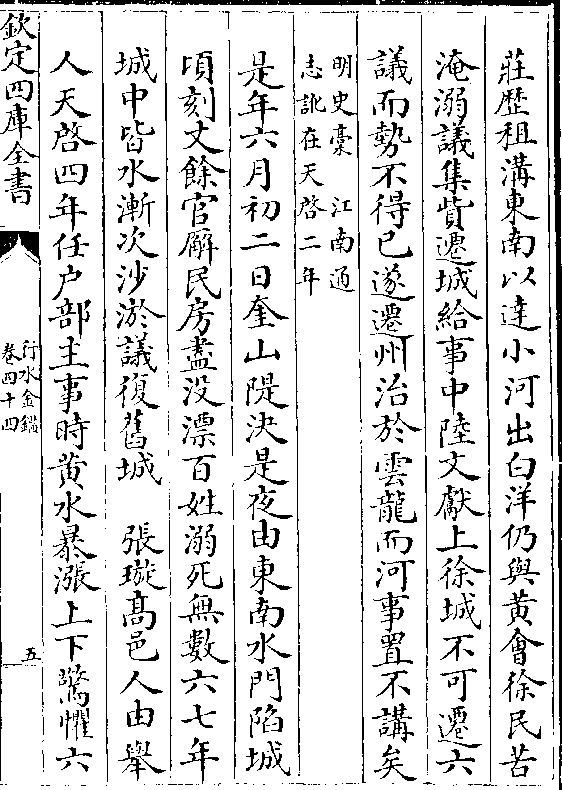 莊歴租溝東南以達小河出白洋仍與黄會徐民苦
淹溺議集貲遷城給事中陸文獻上徐城不可遷六
議而勢不得已遂遷州治於雲龍而河事置不講矣
明史稾　江南通
志訛在天啓二年
是年六月初二日奎山隄決是夜由東南水門陷城
頃刻丈餘官廨民房盡没漂百姓溺死無數六七年
城中皆水漸次沙淤議復舊城　張璇髙邑人由舉
人天啓四年任户部主事時黄水暴漲上下驚懼六
欽定四庫全書
行水金鑑
卷四十四
五